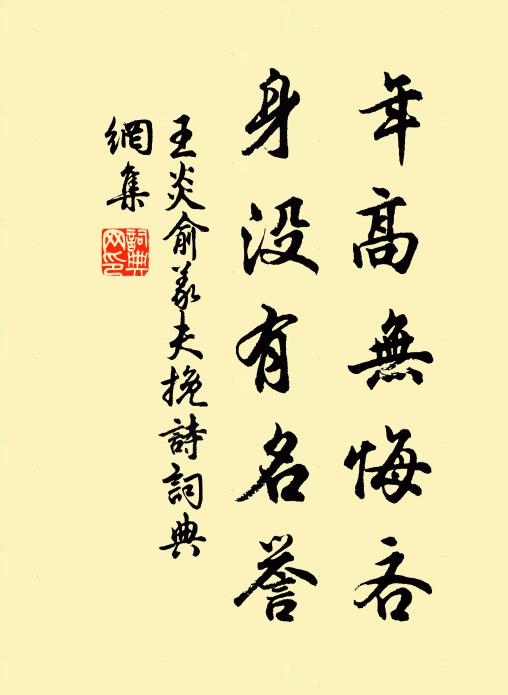 年高無悔吝
身没有名譽
王炎俞義夫挽詩詞典
網集
詞典
网印